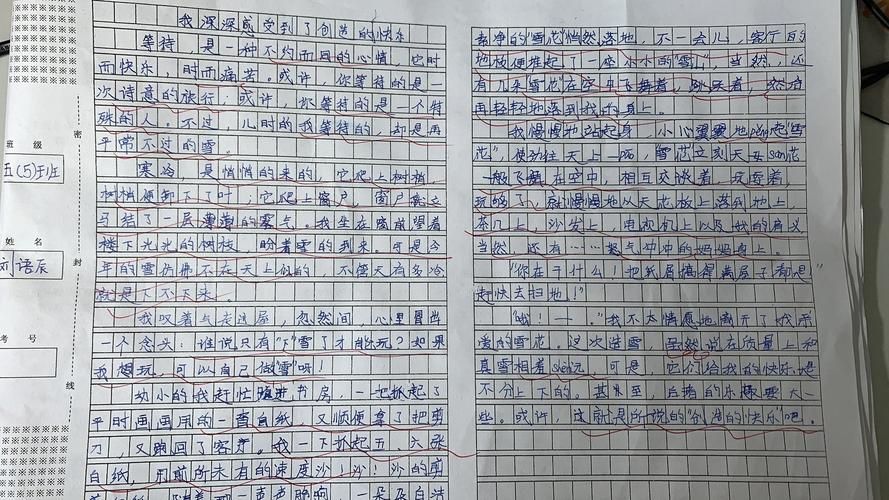 班级
五(5)班
姓名
刘语辰
考号
密
封
线
我深深感受到了创造的快乐
等待，是一种不约而同的心情，它时
而快乐，时而痛苦。或许，你等待的是一
次诗意的旅行；或许，你等待的是一个特
殊的人。不过，儿时的我等待的，却是再
平常不过的雪。
寒冷，是悄悄的来的，它爬上树梢，
树梢便卸下了叶；它爬上窗户，窗户就立
马结了一层薄薄的雾气。我坐在窗前望着
楼下光光的树枝，盼着雪的到来，可是今
年的雪仿佛不在天上似的，不管天有多冷
就是下不下来。
我叹着气走进屋，忽然间，心里冒出
一个念头：谁说只有"下"雪了才能玩？如果
我想玩，可以自己做"雪"呀！
幼小的我赶忙跑进书房，一把抓起了
平时画画用的一沓白纸，又顺便拿了把剪
刀，又跑回了客厅。我一下抓起五、六张
白纸，用前所未有的速度沙！沙！沙的剪
一朵朵白洁
素净的"雪花"悄然落地，不一会儿，客厅的
地板便堆起了一座小小的"雪山"，当然，还
有几朵"雪花"在空中飞舞着，跳跃着，然后
再轻轻地落到我的身上。
我慢慢地站起身，小心翼翼地pěng起"雪
花"，使劲往天上一pāo，"雪花"立刻天女sàn花
一般飞舞在空中，相互交谈着，玩耍着，
玩够了，就慢慢地从天花板上落到地上，
茶几上，沙发上，电视机上以及我的肩
当然，还有……怒气冲冲的妈妈身上。
"你在干什么！把纸屑搞得满屋子都是
赶快去扫地！"
"哦！——。"我不太情愿地离开了我
爱的雪花。这次造雪，虽然说在质量上和
真雪相差shèn远，可是，它们给我的快乐是
不分上下的。甚至，自造的乐趣要大一
些。或许，这就是所说的"创造的快乐"吧。